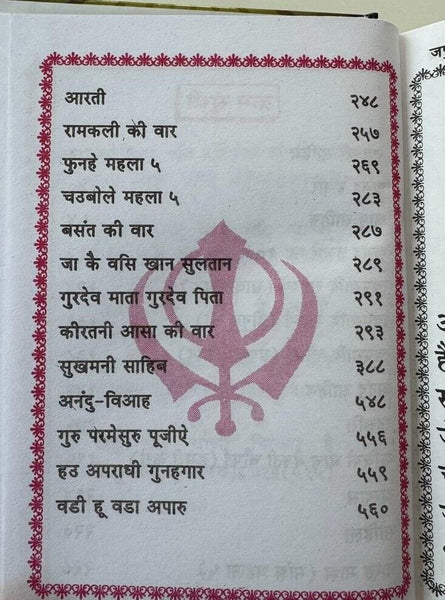 आरती २४८
रामकली की वार २५७
फुनहे महला ५ २६९
चउबोले महला ५ २८३
बसंत की वार २८७
जा कै वसि खान सुलतान २८९
गुरदेव माता गुरदेव पिता २९१
कीरतनी आसा की वार २९३
सुखमनी साहिब ३८८
अनंदु-विआह ५४८
गुरु परमेसुरु पूजीऐ ५५६
हउ अपराधी गुनहगार ५५९
वडी हू वडा अपारु ५६०